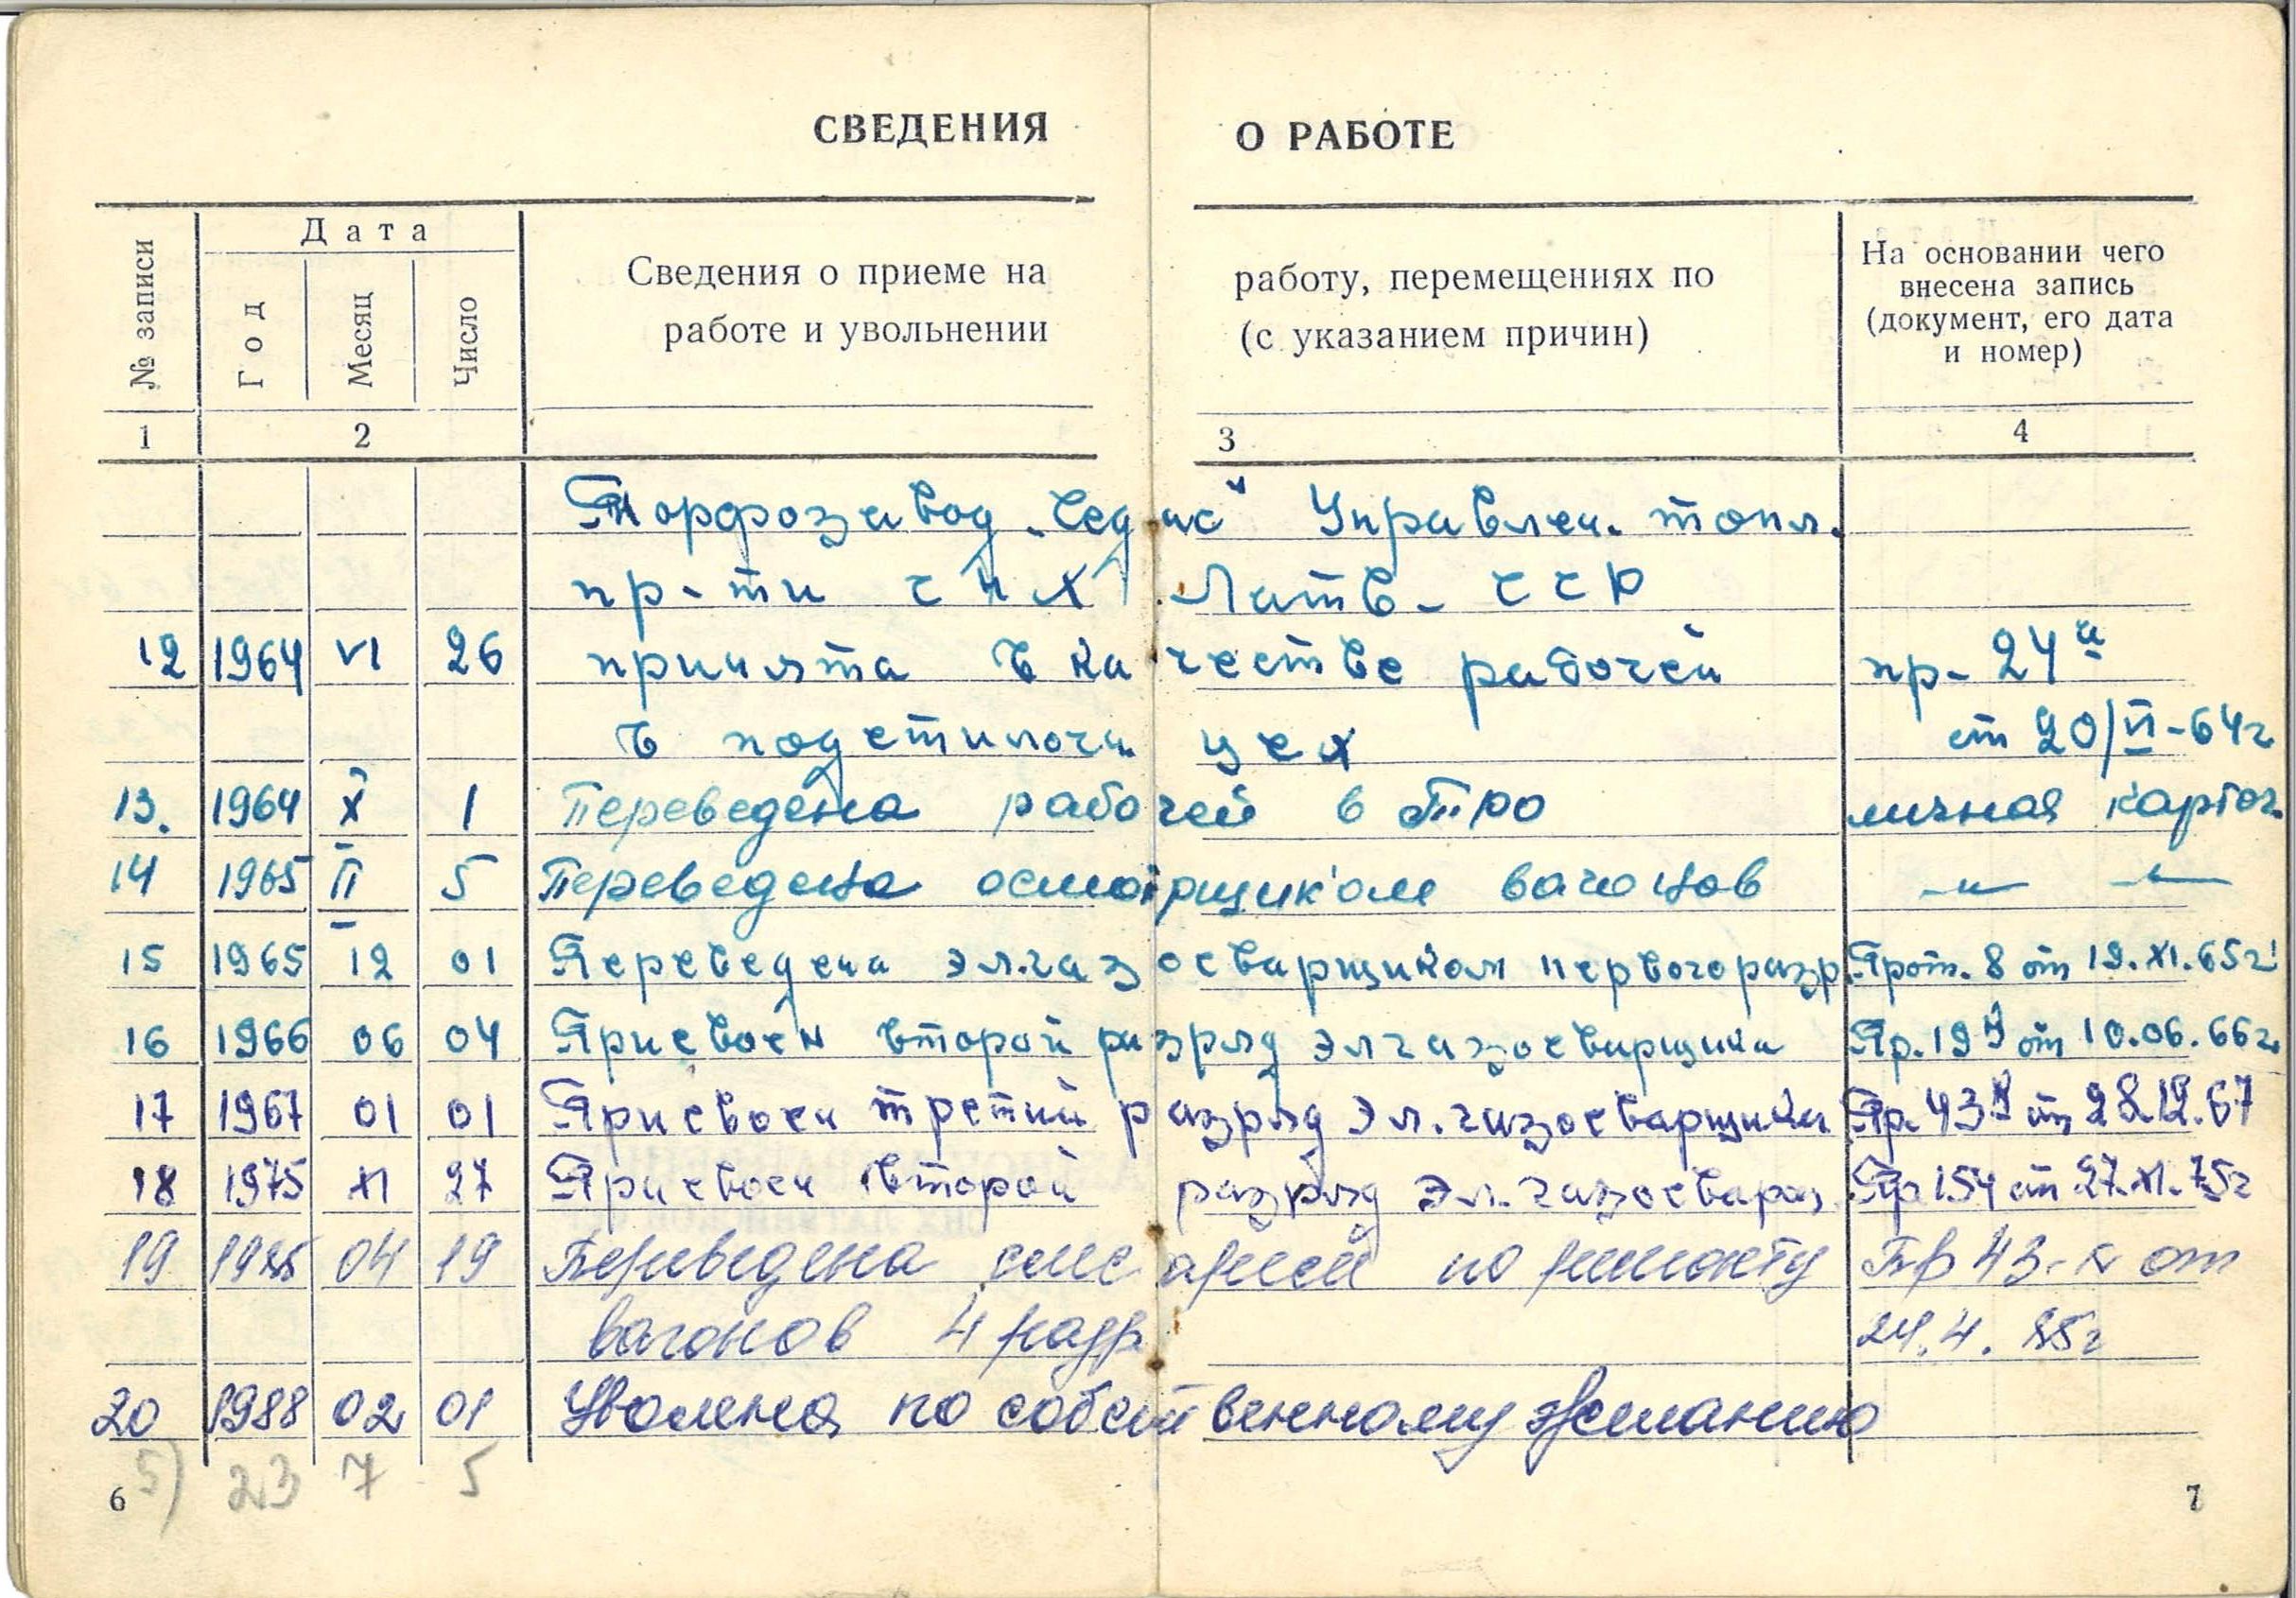 СВЕДЕНИЯ О РАБОТЕ
№ записи
Дата
Год
Месяц
Число
Сведения о приеме на работу, перемещениях по
работе и увольнении (с указанием причин)
На основании чего
внесена запись
(документ, его дата
и номер)
1 2 3 4
Торфозавод „Седас“ Управлен. топл.
пр-ти СНХ Латв. ССР
12 1964 VI 26 принята в качестве рабочей пр. 24
в подстилочн. цех от 20/VI-64г
13. 1964 X 1 Переведена рабочей в ТРО личная карточ.
14 1965 II 5 Переведена осмотрщиком вагонов —〃— —〃—
15 1965 12 01 Переведена эл.газосварщиком первого разр. Прот. 8 от 19.XI.65г.
16 1966 06 04 Присвоен второй разряд элгазосварщика Пр. 19 от 10.06.66г.
17 1967 01 01 Присвоен третий разряд эл.газосварщика Пр. 43 от 28.12.67
18 1975 XI 27 Присвоен второй разряд эл.газосварщ. Пр 154 от 27.XI.75г
19 1985 04 19 Переведена слесарем по ремонту Пр 43-к от
вагонов 4 разр 24.4.85г
20 1988 02 01 Уволена по собственному желанию
5) 23 7 5
6 7